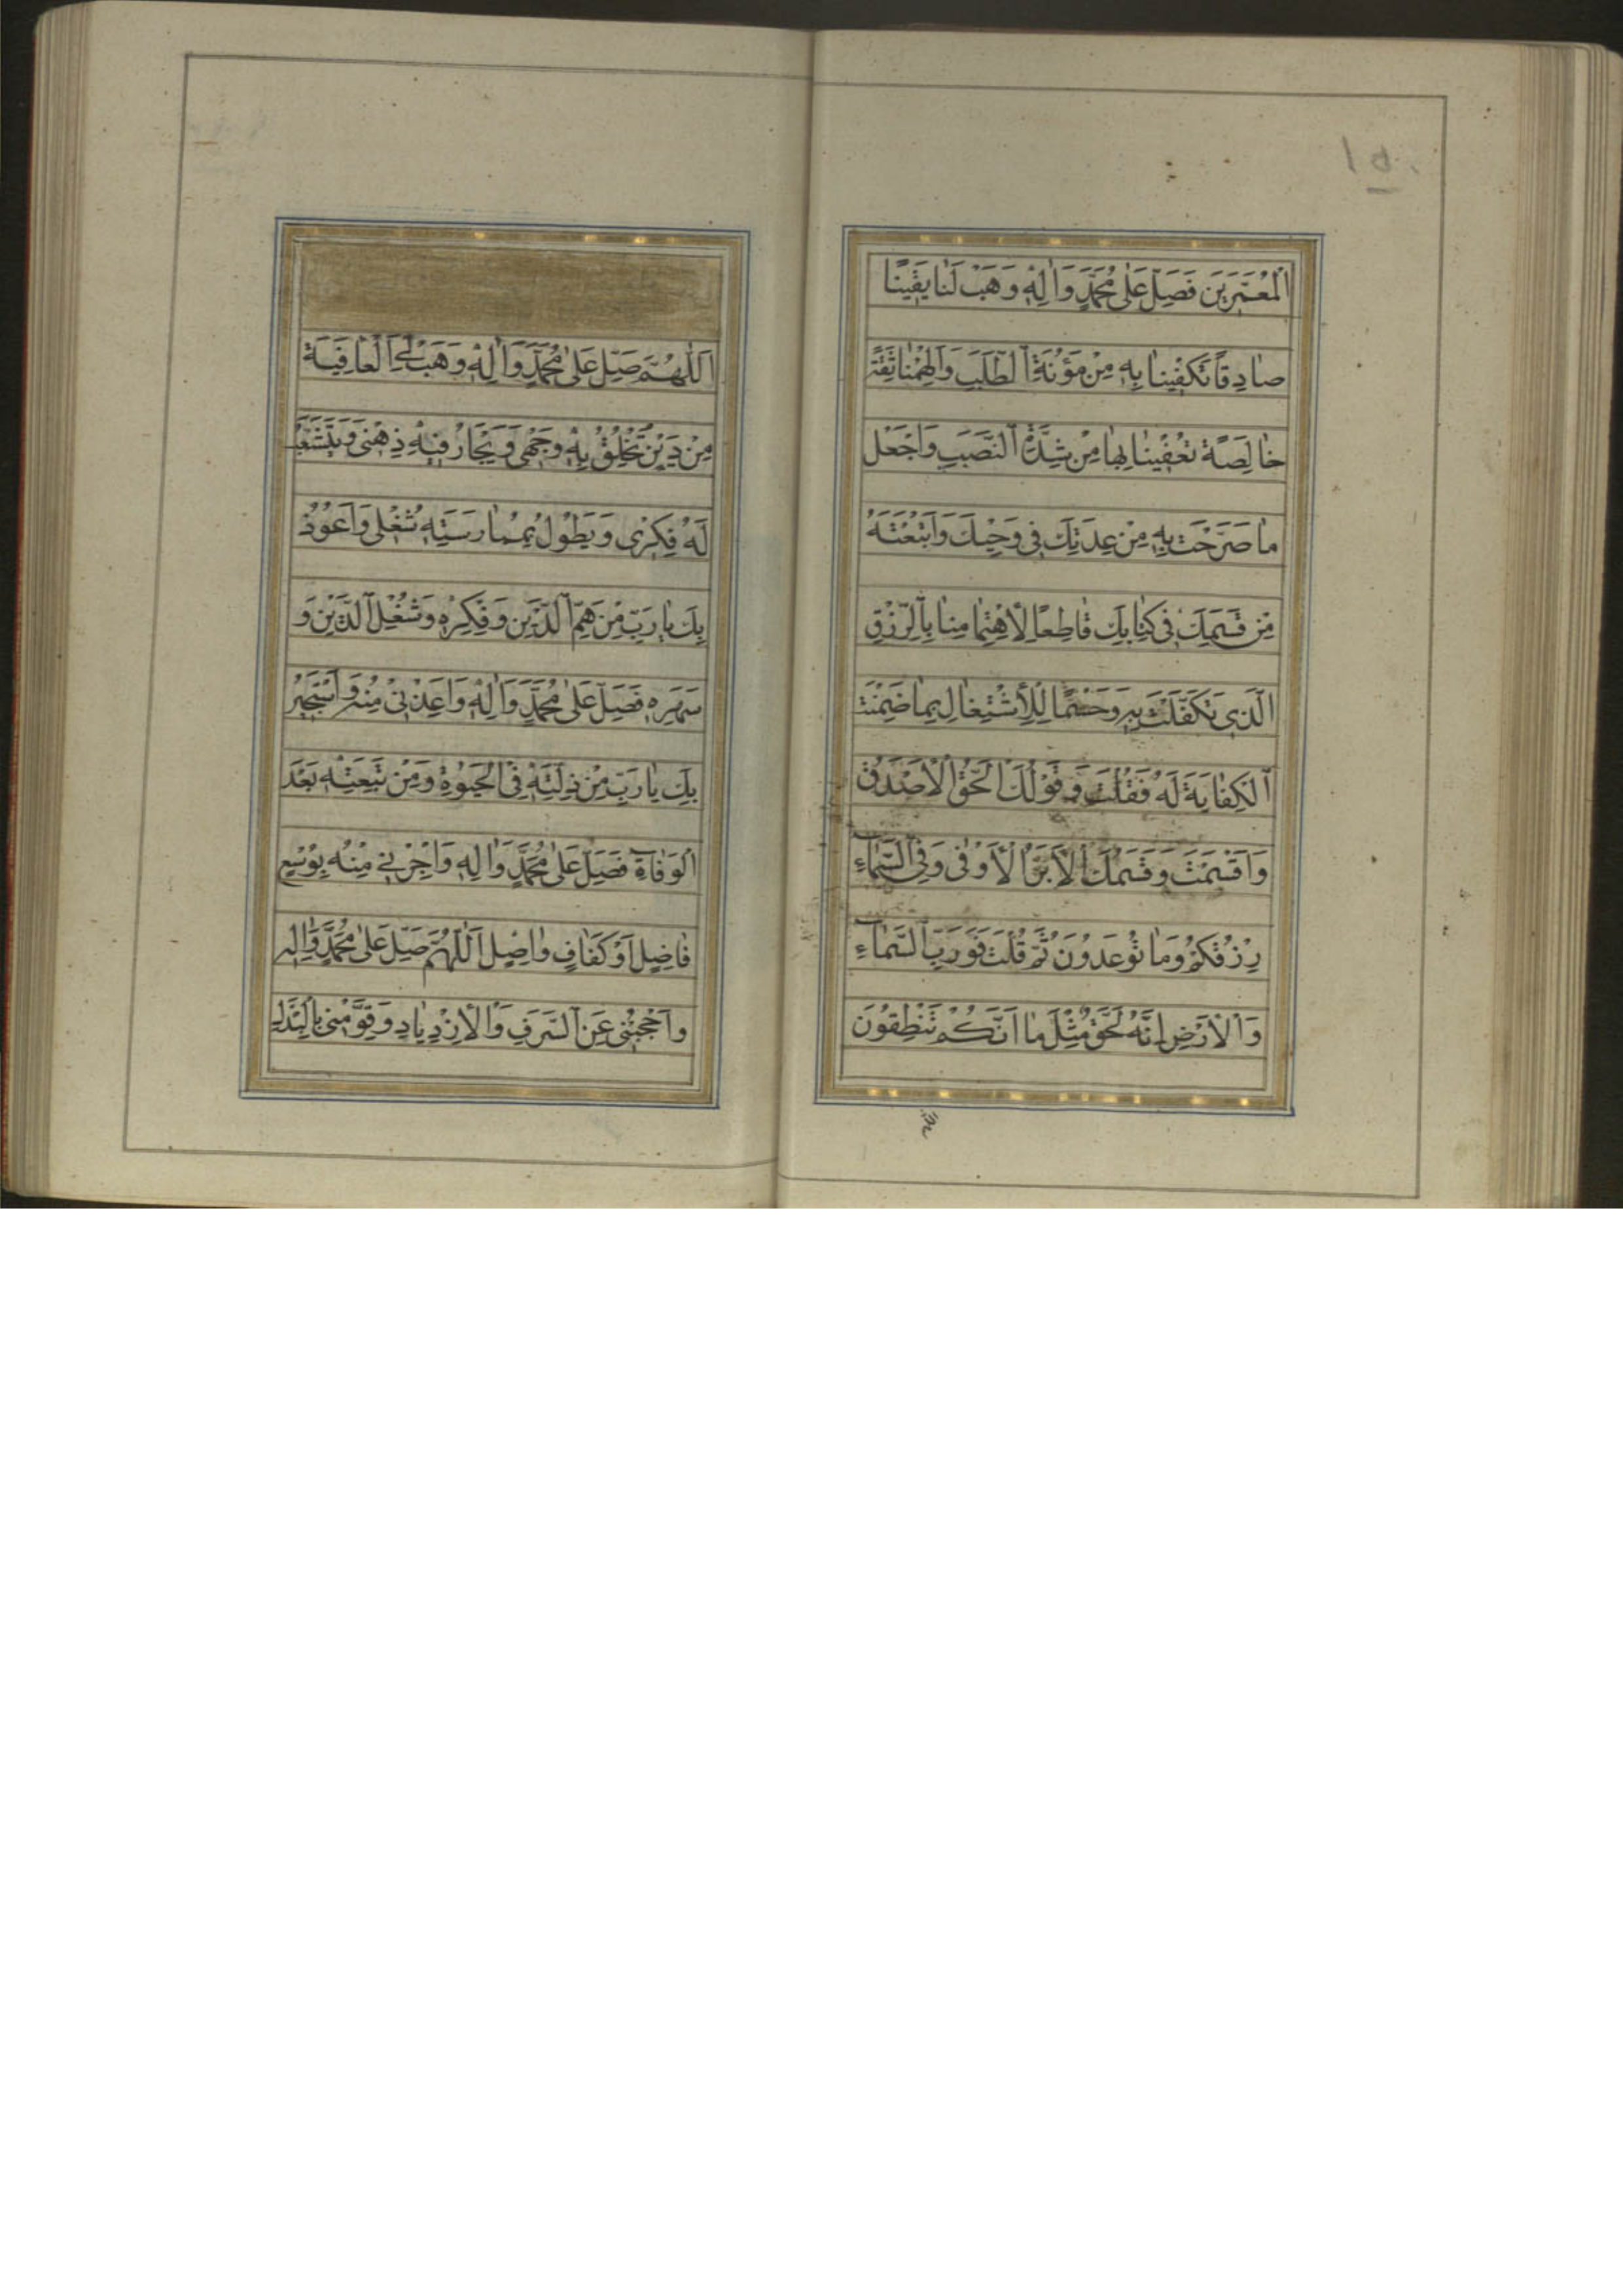 ۱۵۰
اَلْمُعَمَّرِينَ فَصَلِّ عَلىٰ مُحَمَّدٍ وَاٰلِهِ وَهَبْ لَنٰا يَقِينًا
صٰادِقًا تَكْفِينٰا بِهِ مِنْ مَؤُنَةِ ٱلطَّلَبِ وَاَلْهِمْنٰا ثِقَةً
خٰالِصَةً تُعْفِينٰا بِهٰا مِنْ شِدَّةِ ٱلنَّصَبِ وَاجْعَلْ
مٰا صَرَّحْتَ بِهِ مِنْ عِدَتِكَ فِي وَحْيِكَ وَاَتْبَعْتَهُ
مِنْ قَسَمِكَ فِي كِتٰابِكَ قٰاطِعًا لِاهْتِمٰامِنٰا بِٱلرِّزْقِ
الَّذِي تَكَفَّلْتَ بِهِ وَحَسْمًا لِلْاِشْتِغٰالِ بِمٰا ضَمِنْتَ
ٱلْكِفٰايَةَ لَهُ فَقُلْتَ وَقَوْلُكَ الْحَقُّ الْاَصْدَقُ
وَاَقْسَمْتَ وَقَسَمُكَ الْاَبَرُّ الْاَوْفىٰ وَفِي ٱلسَّمٰاءِ
رِزْقُكُمْ وَمٰا تُوعَدُونَ ثُمَّ قُلْتَ فَوَرَبِّ ٱلسَّمٰاءِ
وَالْاَرْضِ اِنَّهُ لَحَقٌّ مِثْلَ مٰا اَنَّكُمْ تَنْطِقُونَ
اَللّٰهُمَّ صَلِّ عَلىٰ مُحَمَّدٍ وَاٰلِهِ وَهَبْ لِيَ الْعٰافِيَةَ
مِنْ دَيْنٍ تُخْلِقُ بِهِ وَجْهِي وَيَحٰارُ فِيهِ ذِهْنِي وَيَتَشَعَّبُ
لَهُ فِكْرِي وَيَطُولُ بِمُمٰارَسَتِهِ شُغْلِي وَاَعُوذُ
بِكَ يٰا رَبِّ مِنْ هَمِّ ٱلدَّيْنِ وَفِكْرِهِ وَشُغْلِ ٱلدَّيْنِ وَ
سَهَرِهِ فَصَلِّ عَلىٰ مُحَمَّدٍ وَاٰلِهِ وَاَعِذْنِي مِنْهُ وَاَسْتَجِيرُ
بِكَ يٰا رَبِّ مِنْ ذِلَّتِهِ فِي الْحَيٰوةِ وَمِنْ تَبِعَتِهِ بَعْدَ
الْوَفٰاةِ فَصَلِّ عَلىٰ مُحَمَّدٍ وَاٰلِهِ وَاَجِرْنِي مِنْهُ بِوُسْعٍ
فٰاضِلٍ اَوْ كَفٰافٍ وٰاصِلٍ اَللّٰهُمَّ صَلِّ عَلىٰ مُحَمَّدٍ وَاٰلِهِ
وَاحْجُبْنِي عَنِ ٱلسَّرَفِ وَالْاِزْدِيٰادِ وَقَوِّمْنِي بِالْبَذْلِ